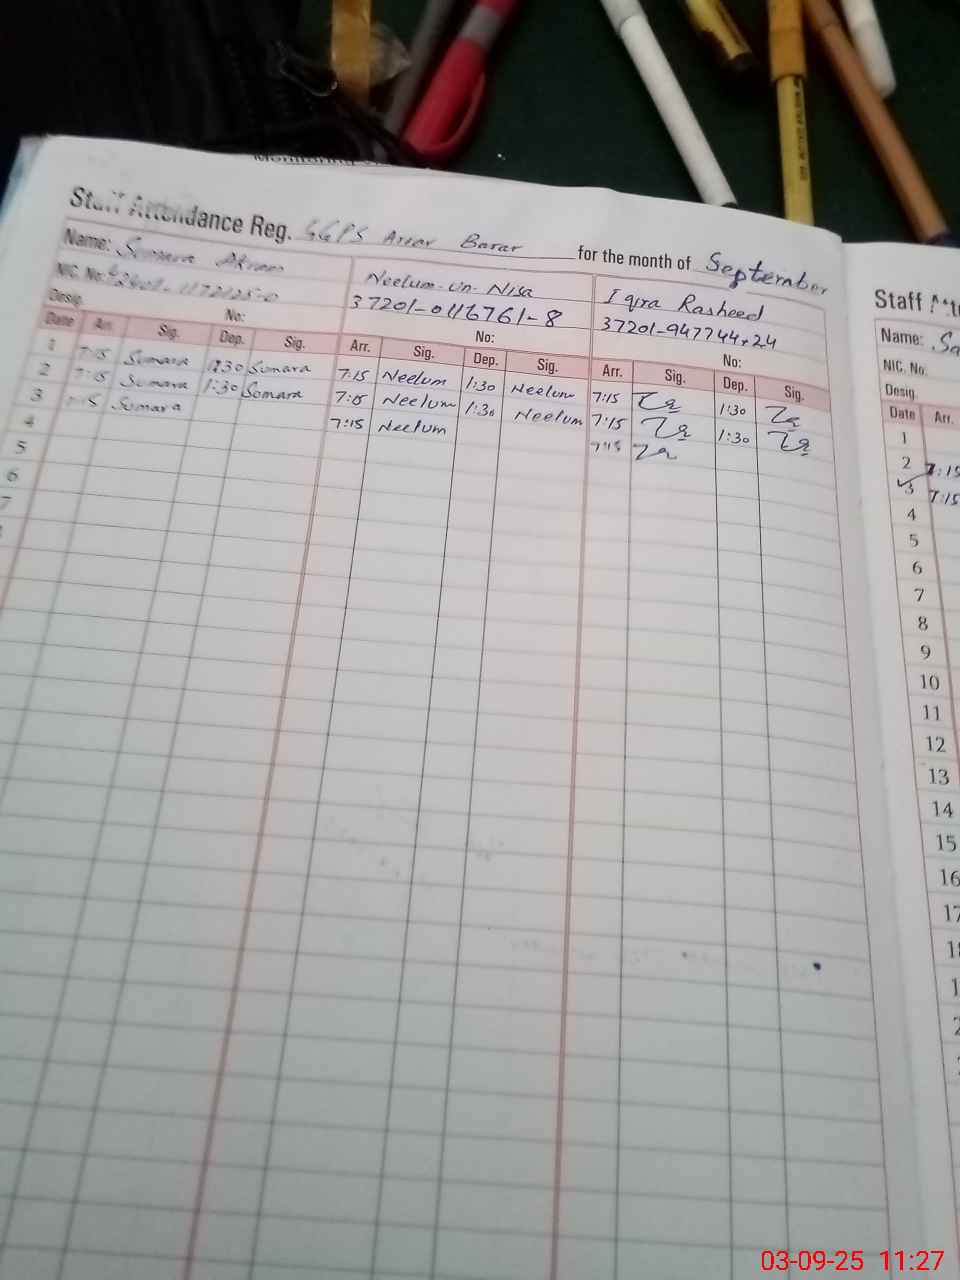 Staff Attendance Reg. GGPS Barar for the month of September
Name: Somara Neelum-un-Nisa Iqra Rasheed
NIC. No. 37201-0116761-8 37201-947744
Desig. No: No: No:
Date Arr. Sig. Dep. Sig. Arr. Sig. Dep. Sig. Arr. Sig. Dep. Sig.
1 7:15 Somara Somara 7:15 Neelum 1:30 Neelum 7:15 1:30
2 7:15 Somara 1:30 Somara 7:15 Neelum 1:30 Neelum 7:15 1:30
3 Somara 7:15 Neelum 7:15
4
5
6
7
Staff
Name:
NIC. No.
Desig.
Date Arr.
1
2 7:15
3 7:15
4
5
6
7
8
9
10
11
12
13
14
15
16
17
03-09-25 11:27